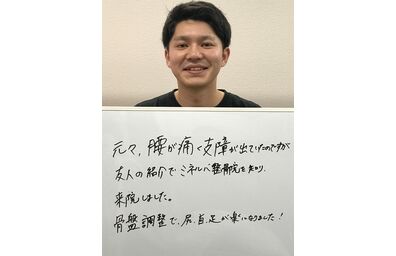 元々、腰が痛く支障が出ていたのですが
友人の紹介でミネルバ整骨院を知り、
来院しました。
骨盤調整で、尻、肩、足が楽になりました！